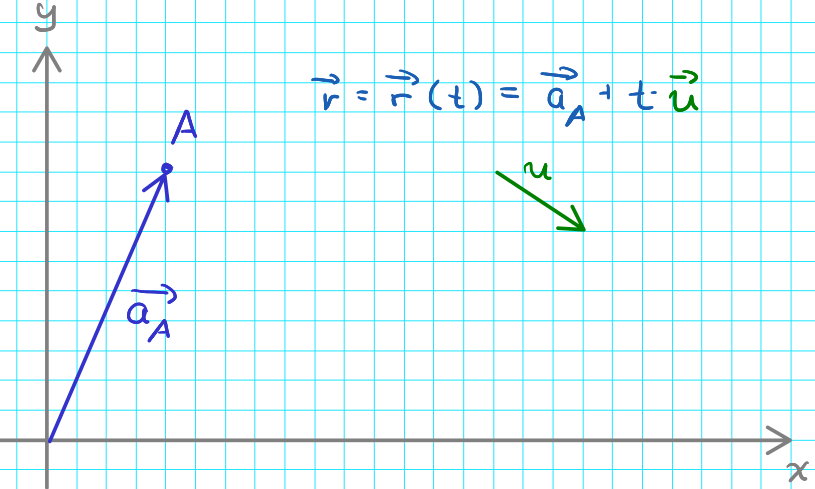 y
r⃗ = r⃗(t) = a⃗_A + t·u⃗
A
u
a⃗_A
x